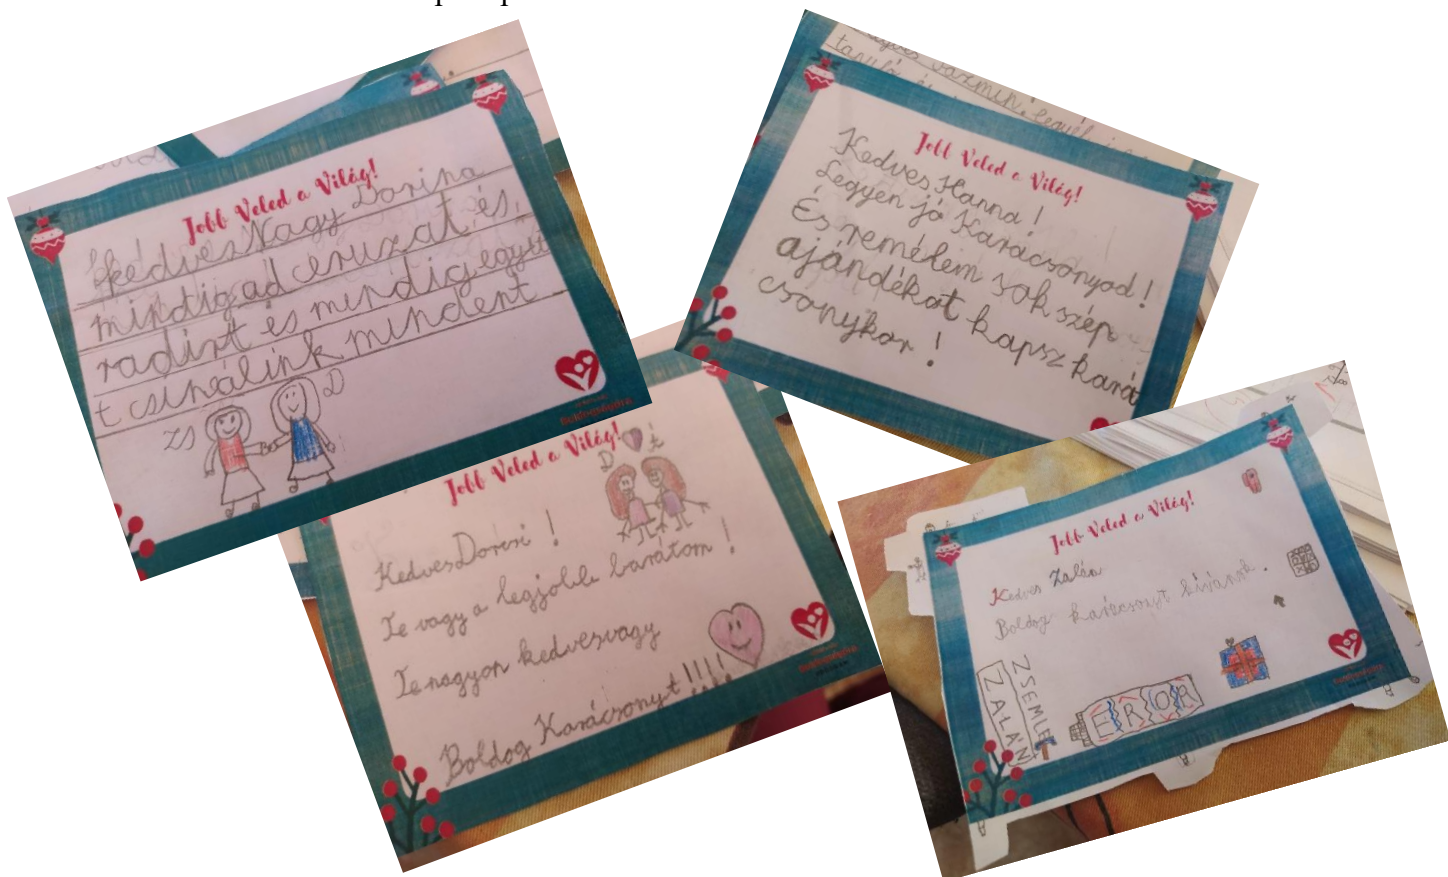 Jobb Veled a Világ!
Kedves Nagy Dorina
mindig ad ceruzat és
radirt és mindig együt
t csinálink mindent
ZS
D
Jobb Veled a Világ!
Kedves Hanna!
Legyen jó Karácsonyod!
És remélem sok szép
ajándékot kapsz kará
csonykor!
Jobb Veled a Világ!
D
t
Kedves Dorcsi!
Te vagy a legjobb barátom!
Te nagyon kedves vagy
Boldog Karácsonyt!!!!
Jobb Veled a Világ!
Kedves Zalán
Boldog karácsonyt kívánok.
ZSEMLE
ZALÁN
EROR